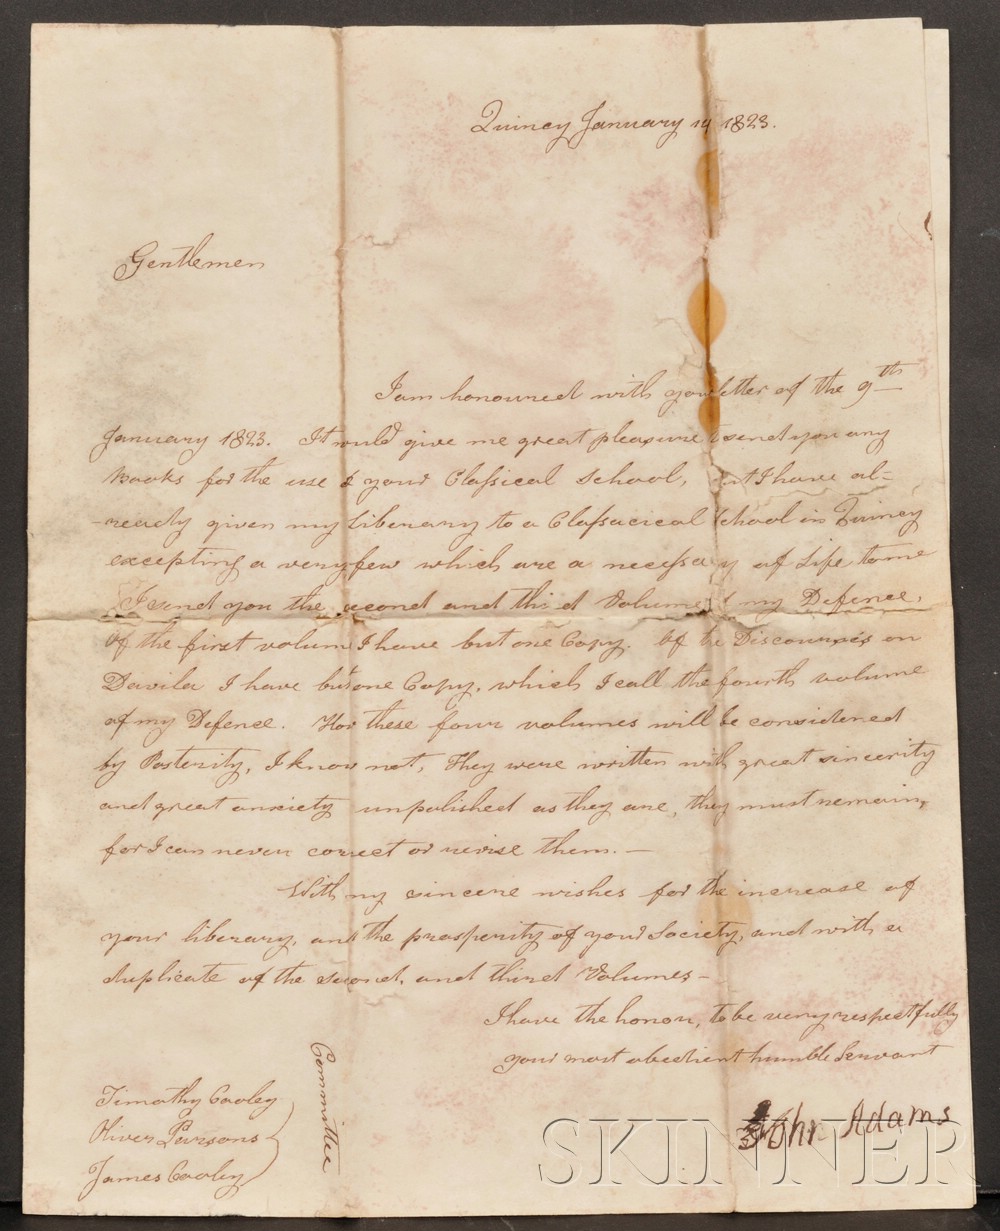 Quincy January 14 1823.
Gentlemen
I am honoured with your letter of the 9th
January 1823. It would give me great pleasure to send you any
Books for the use of your Classical School, but I have al-
-ready given my Liberary to a Classacical School in Quincy
excepting a very few which are a necessary of Life to me
I send you the second and third Volumes of my Defence,
of the first volume I have but one Copy. Of the Discourses on
Davila I have but one Copy, which I call the fourth volume
of my Defence. How these four volumes will be considered
by Posterity, I know not, They were written with great sincerity
and great anxiety unpolished as they are, they must remain,
for I can never correct or revise them. —
With my sincere wishes for the increase of
your liberary, and the prosperity of your Society, and with a
duplicate of the second, and third Volumes —
I have the honor, to be very respectfully
your most obedient humble Servant
John Adams
Timothy Cooley
Oliver Parsons
James Cooley
Committee
SKINNER